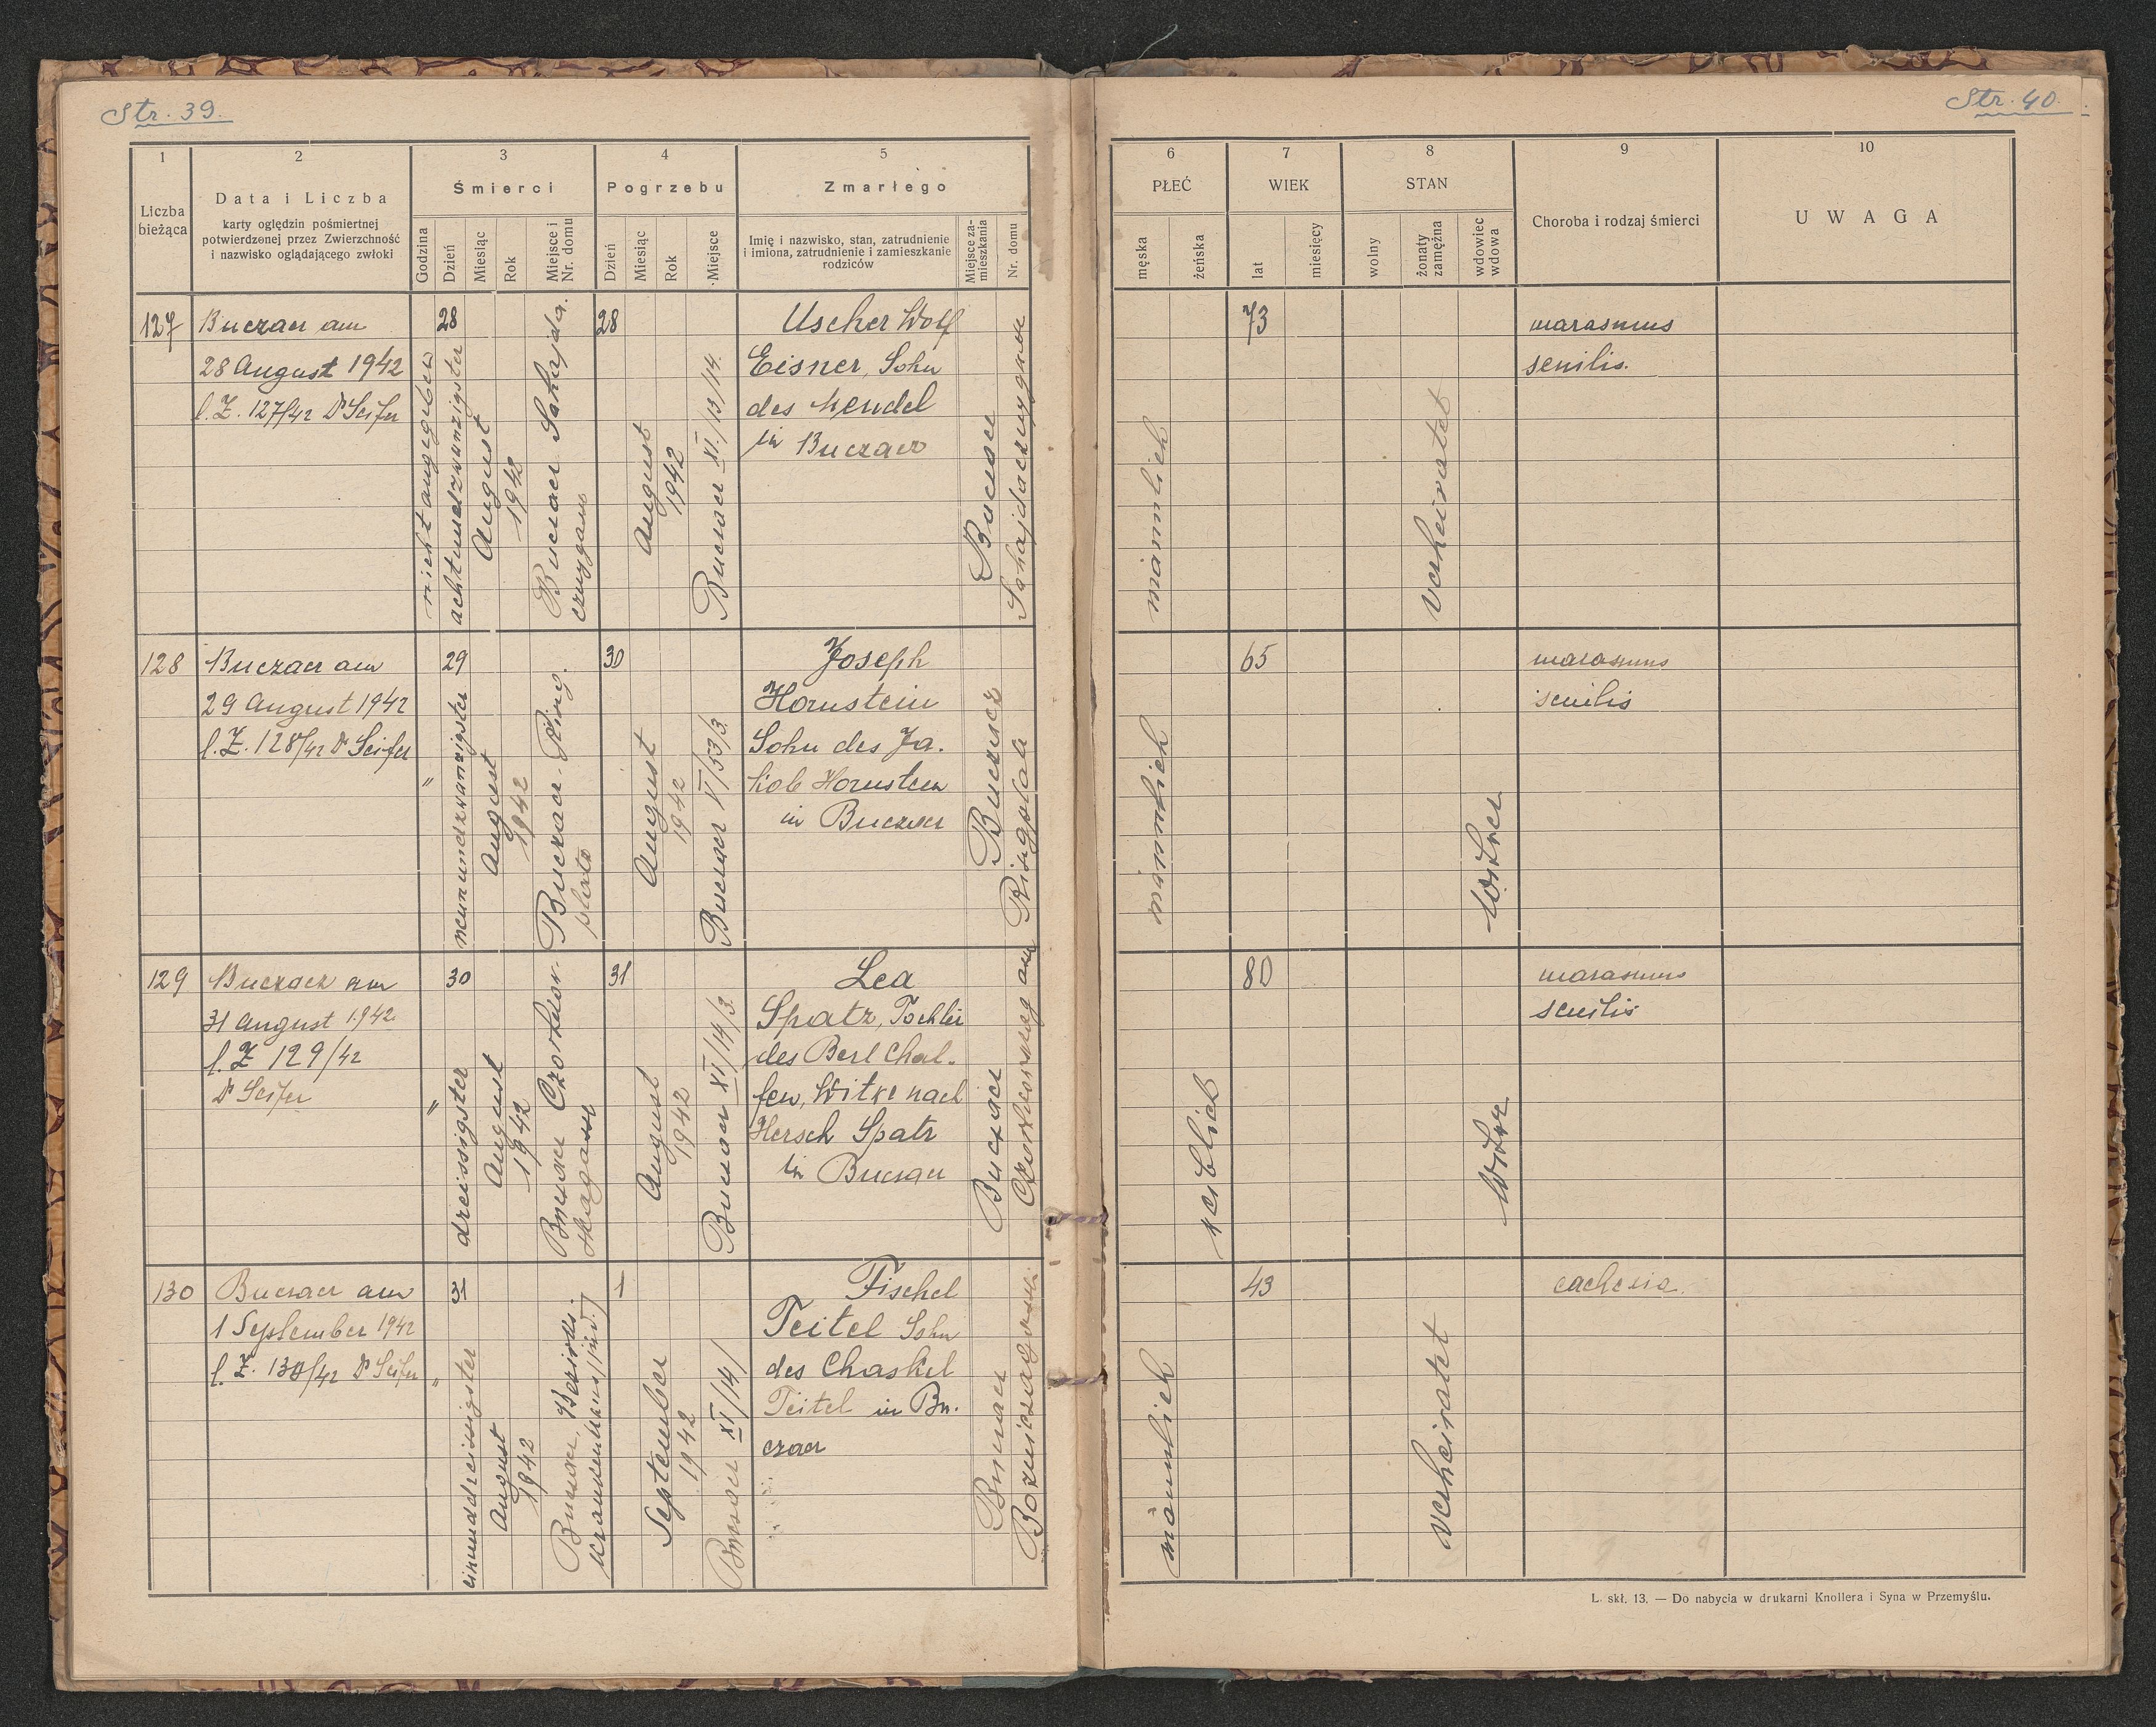 Str. 39.
1
2
3
4
5
Liczba
bieżąca
Data i Liczba
karty oględzin pośmiertnej
potwierdzonej przez Zwierzchność
i nazwisko oglądającego zwłoki
Śmierci
Godzina
Dzień
Miesiąc
Rok
Miejsce i
Nr. domu
Pogrzebu
Dzień
Miesiąc
Rok
Miejsce
Zmarłego
Imię i nazwisko, stan, zatrudnienie
i imiona, zatrudnienie i zamieszkanie
rodziców
Miejsce za-
mieszkania
Nr. domu
127
Buczacz am
28 August 1942
l. Z. 127/42 Dr Seifer
nicht angegeben
28
achtundzwanzigster
August
1942
Buczacz
28
August
1942
Buczacz XI./13/14.
Uscher Wolf
Eisner, Sohn
des Mendel
in Buczacz
Buczacz
128
Buczacz am
29 August 1942
l. Z. 128/42 Dr Seifer
"
29
neunundzwanzigster
August
1942
Buczacz Ring-
platz
30
August
1942
Buczacz VI/53/3
Joseph
Hornstein
Sohn des Ja-
kob Hornstein
in Buczacz
Buczacz
Ringplatz
129
Buczacz am
31 August 1942
l. Z 129/42
Dr Seifer
"
30
dreissigster
August
1942
Buczacz Czortkow-
skagasse
31
August
1942
Buczacz XI/14/3
Lea
Spatz, Tochter
des Berl Chal-
fen, Witwe nach
Hersch Spatz
in Buczacz
Buczacz
130
Buczacz am
1 September 1942
l. Z. 130/42 Dr Seifer
"
31
einunddreissigster
August
1942
Buczacz, Bezirks-
krankenhaus (jüd.)
1
September
1942
Buczacz XI/14/
Fischel
Teitel Sohn
des Chaskel
Teitel in Bu-
czacz
Buczacz
Str. 40.
6
7
8
9
10
PŁEĆ
męska
żeńska
WIEK
lat
miesięcy
STAN
wolny
żonaty
zamężna
wdowiec
wdowa
Choroba i rodzaj śmierci
UWAGA
männlich
73
verheiratet
marasmus
senilis.
männlich
65
Witwer
marasmus
senilis
weiblich
80
Witwe
marasmus
senilis
männlich
43
verheiratet
cachexia.
L. skł. 13. — Do nabycia w drukarni Knollera i Syna w Przemyślu.